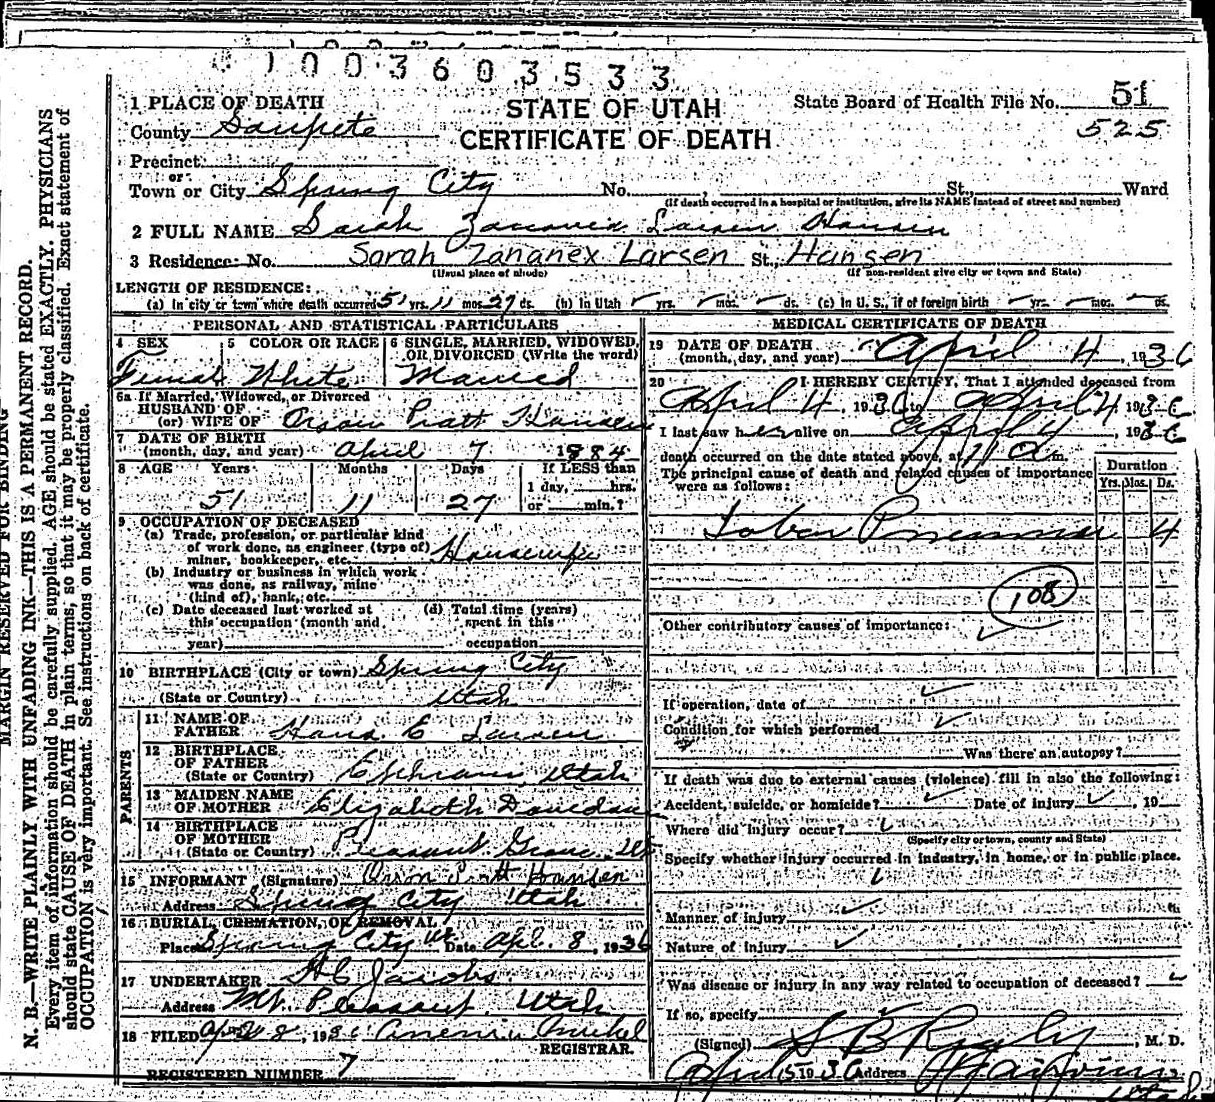 0 1 0 0 3 6 0 3 5 3 3
1 PLACE OF DEATH
STATE OF UTAH
CERTIFICATE OF DEATH
State Board of Health File No. 51
525
County Sanpete
Precinct
or
Town or City Spring City No. , St., Ward
(If death occurred in a hospital or institution, give its NAME instead of street and number)
2 FULL NAME Sarah Larsen Hansen
3 Residence: No. Sarah Zananex Larsen St., Hansen
(Usual place of abode) (If non-resident give city or town and State)
LENGTH OF RESIDENCE:
(a) In city or town where death occurred 51 yrs. 11 mos. 27 ds. (b) In Utah yrs. mos. ds. (c) In U. S., if of foreign birth yrs. mos. ds.
PERSONAL AND STATISTICAL PARTICULARS
4 SEX 5 COLOR OR RACE 6 SINGLE, MARRIED, WIDOWED, OR DIVORCED (Write the word)
Female White Married
6a If Married, Widowed, or Divorced
HUSBAND OF
(or) WIFE OF Orson Pratt Hansen
7 DATE OF BIRTH
(month, day, and year) April 7 1884
8 AGE Years Months Days If LESS than
1 day, hrs.
51 11 27 or min.?
9 OCCUPATION OF DECEASED
(a) Trade, profession, or particular kind
of work done, as engineer (type of)
miner, bookkeeper, etc. Housewife
(b) Industry or business in which work
was done, as railway, mine
(kind of), bank, etc.
(c) Date deceased last worked at (d) Total time (years)
this occupation (month and spent in this
year) occupation
10 BIRTHPLACE (City or town) Spring City
(State or Country) Utah
PARENTS
11 NAME OF
FATHER Hans E Larsen
12 BIRTHPLACE
OF FATHER
(State or Country) Ephraim, Utah
13 MAIDEN NAME
OF MOTHER Elizabeth
14 BIRTHPLACE
OF MOTHER
(State or Country) Pleasant Grove, Ut
15 INFORMANT (Signature) Orson P Hansen
Address Spring City Utah
16 BURIAL, CREMATION, OR REMOVAL
Place Spring City Ut Date Apl. 8, 1936
17 UNDERTAKER H C Jacobs
Address Mt. Pleasant Utah
18 FILED April 8, 1936
REGISTRAR.
REGISTERED NUMBER 7
MEDICAL CERTIFICATE OF DEATH
19 DATE OF DEATH
(month, day, and year) April 4, 1936
20 I HEREBY CERTIFY, That I attended deceased from
April 4, 1936 to April 4 1936
I last saw her alive on April 4, 1936
death occurred on the date stated above, at 11 a m.
The principal cause of death and related causes of importance
were as follows:
Duration
Yrs. Mos. Ds.
Lobar Pneumonia 4
108
Other contributory causes of importance:
If operation, date of
Condition for which performed
Was there an autopsy?
If death was due to external causes (violence) fill in also the following:
Accident, suicide, or homicide? Date of injury , 19
Where did injury occur?
(Specify city or town, county and State)
Specify whether injury occurred in industry, in home, or in public place.
Manner of injury
Nature of injury
Was disease or injury in any way related to occupation of deceased?
If so, specify
(Signed) , M. D.
April 5 1936 Address
Utah
MARGIN RESERVED FOR BINDING
N. B.—WRITE PLAINLY WITH UNFADING INK—THIS IS A PERMANENT RECORD.
Every item of information should be carefully supplied. AGE should be stated EXACTLY. PHYSICIANS
should state CAUSE OF DEATH in plain terms, so that it may be properly classified. Exact statement of
OCCUPATION is very important. See instructions on back of certificate.